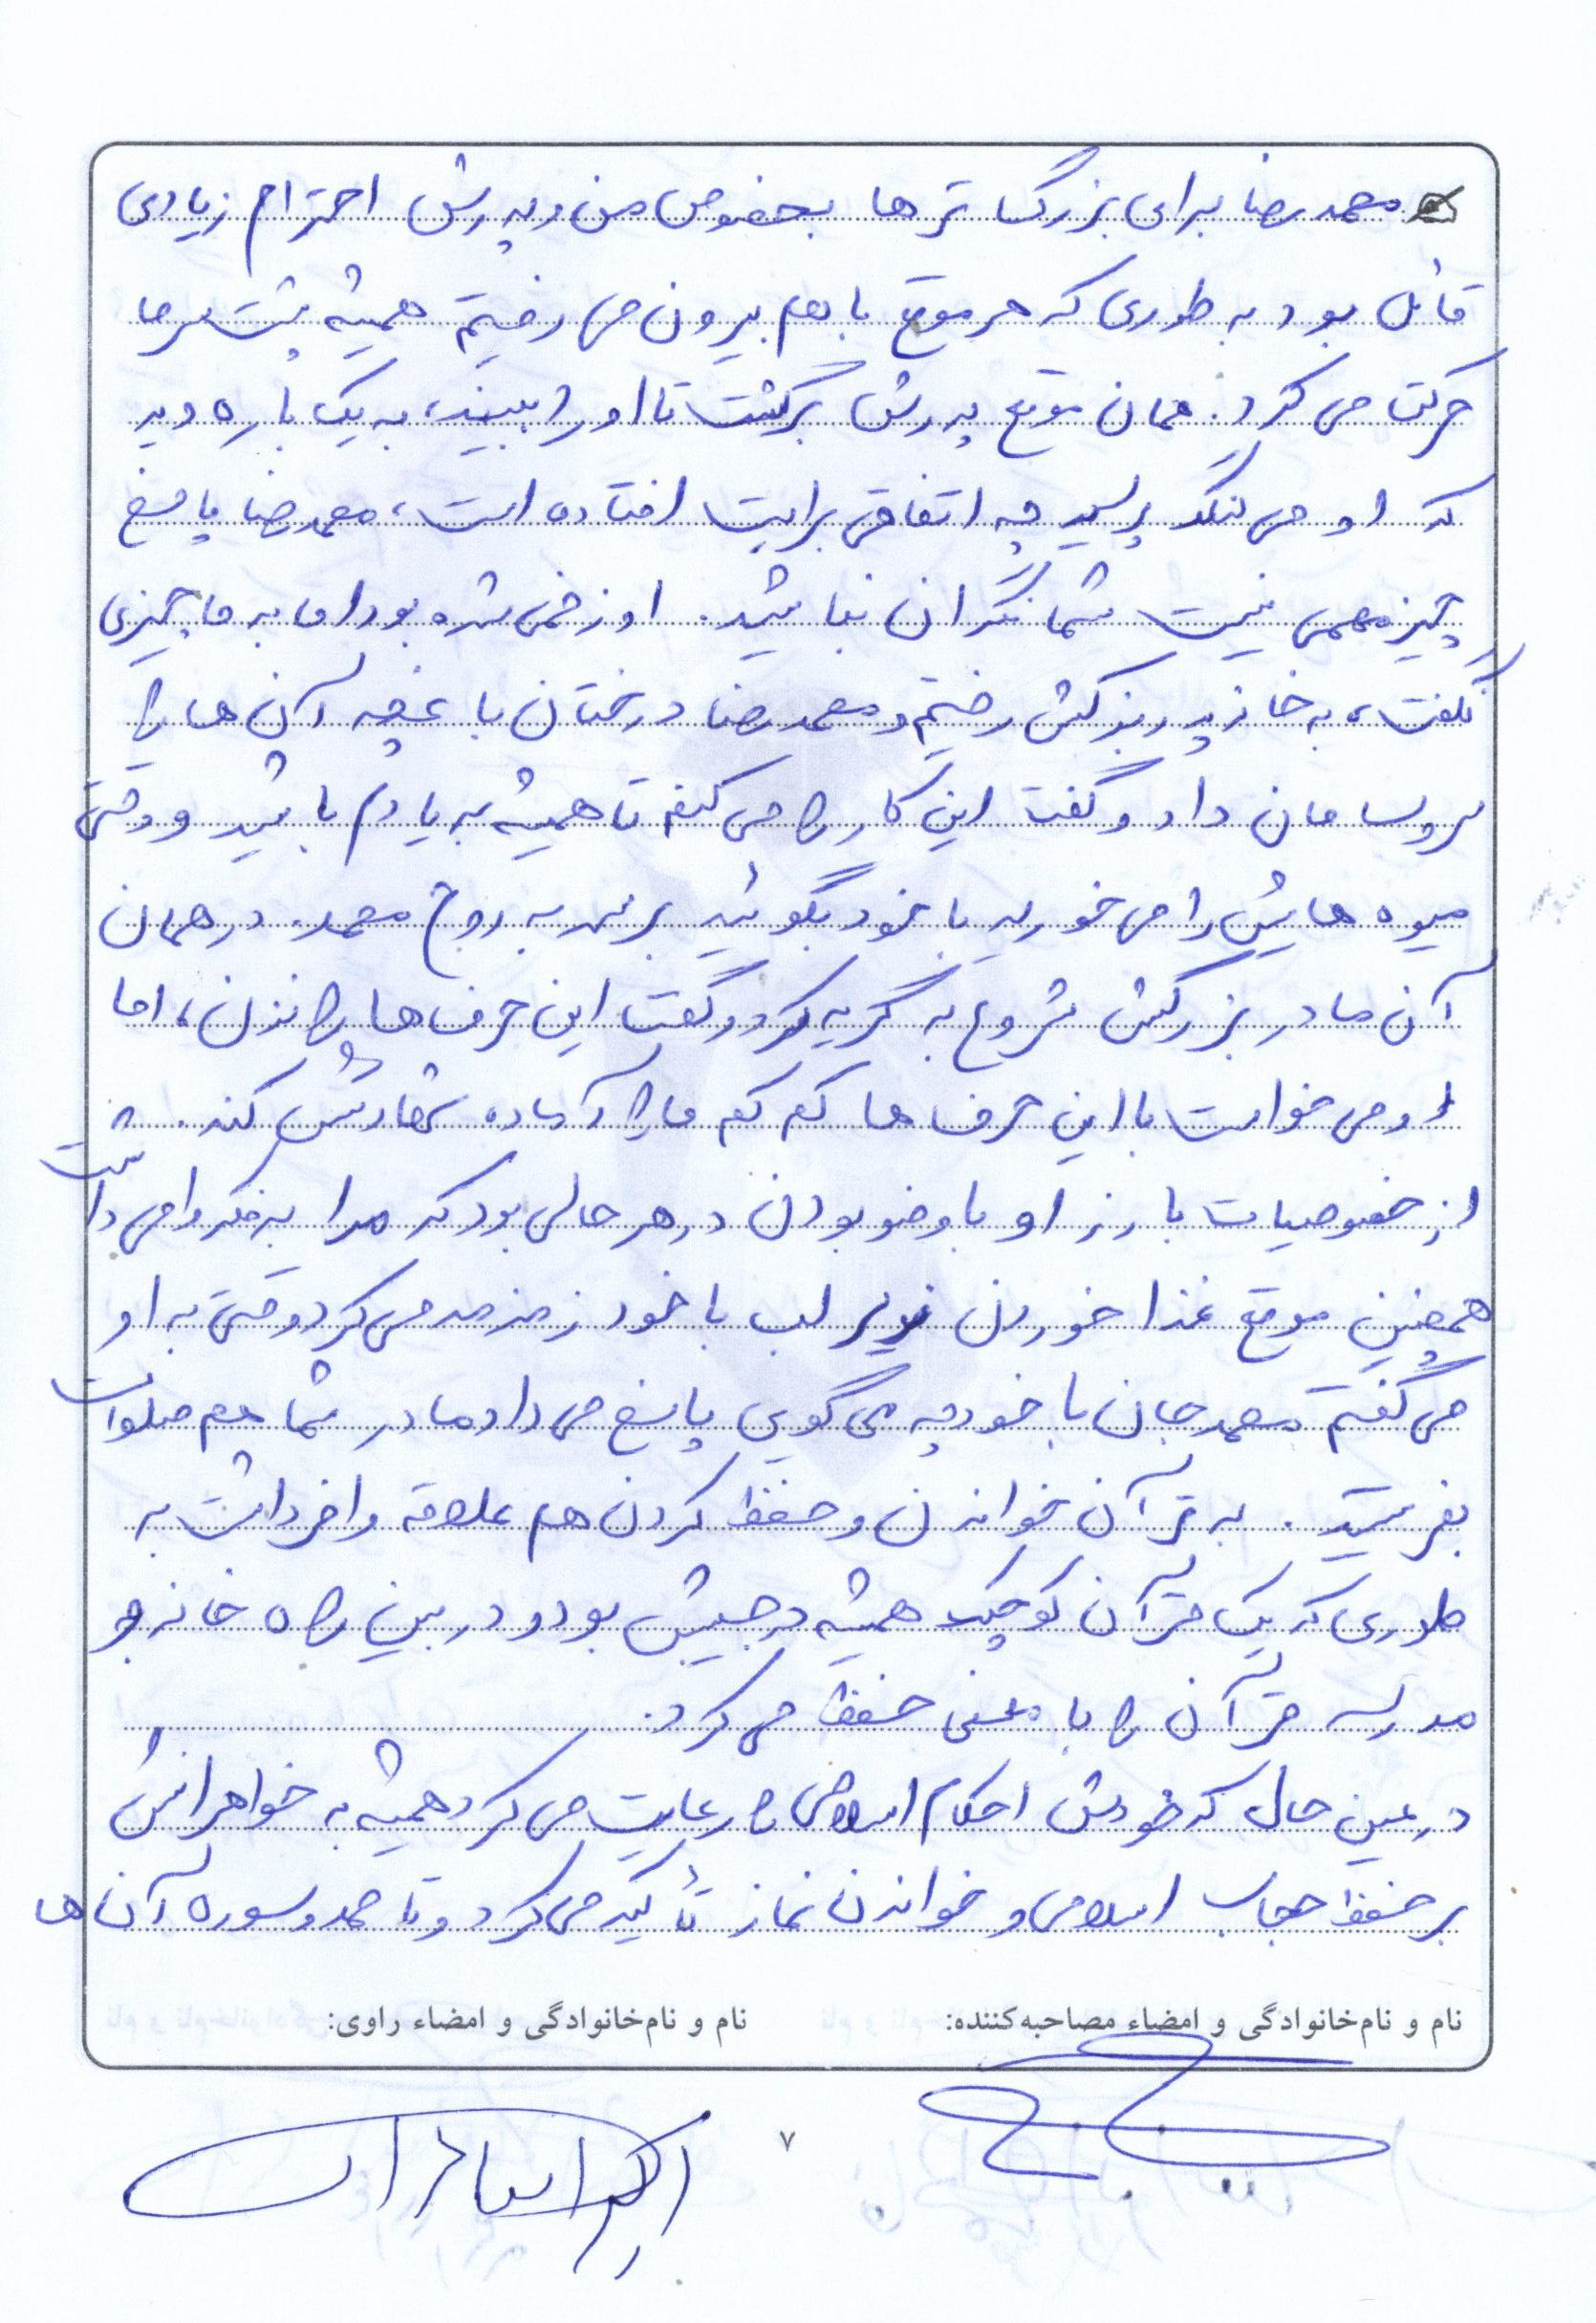 محمدرضا برای بزرگ‌ترها بخصوص من و پدرش احترام زیادی
قائل بود به طوری که هر موقع با هم بیرون می رفتیم همیشه پشت سر ما
حرکت می کرد. همان موقع پدرش برگشت تا او را ببیند، به یک باره دید
که او می لنگد پرسید چه اتفاقی برایت افتاده است، محمدرضا پاسخ
چیز مهمی نیست شما نگران نباشید. او زخمی شده بود اما به ما چیزی
نگفت، به خانه پدربزرگش رفتیم و محمدرضا درختان باغچه آن ها را
سر و سامان داد و گفت این کار را می کنم تا همیشه به یادم باشید و وقتی
میوه هایش را می خورید با خود بگوئید برسد به روح محمد. در همان
آن مادر بزرگش شروع به گریه کرد و گفت این حرف ها را نزن، اما
او می خواست با این حرف ها کم کم ما را آماده شهادتش کند.
از خصوصیات بارز او با وضو بودن در هر حالی بود که مرا به فکر وا می داشت
همچنین موقع غذا خوردن زیر لب با خود زمزمه می کرد وقتی به او
می گفتم محمد جان با خود چه می گویی پاسخ می داد مادر شما هم صلوات
بفرستید. به قرآن خواندن و حفظ کردن هم علاقه وافر داشت به
طوری که یک قرآن کوچک همیشه در جیبش بود و در بین راه خانه و
مدرسه قرآن را با معنی حفظ می کرد.
در عین حال که خودش احکام اسلامی را رعایت می کرد همیشه به خواهرانش
بر حفظ حجاب اسلامی و خواندن نماز تأکید می کرد و تا حمد و سوره آن ها
نام و نام‌خانوادگی و امضاء مصاحبه‌کننده: نام و نام‌خانوادگی و امضاء راوی:
۷